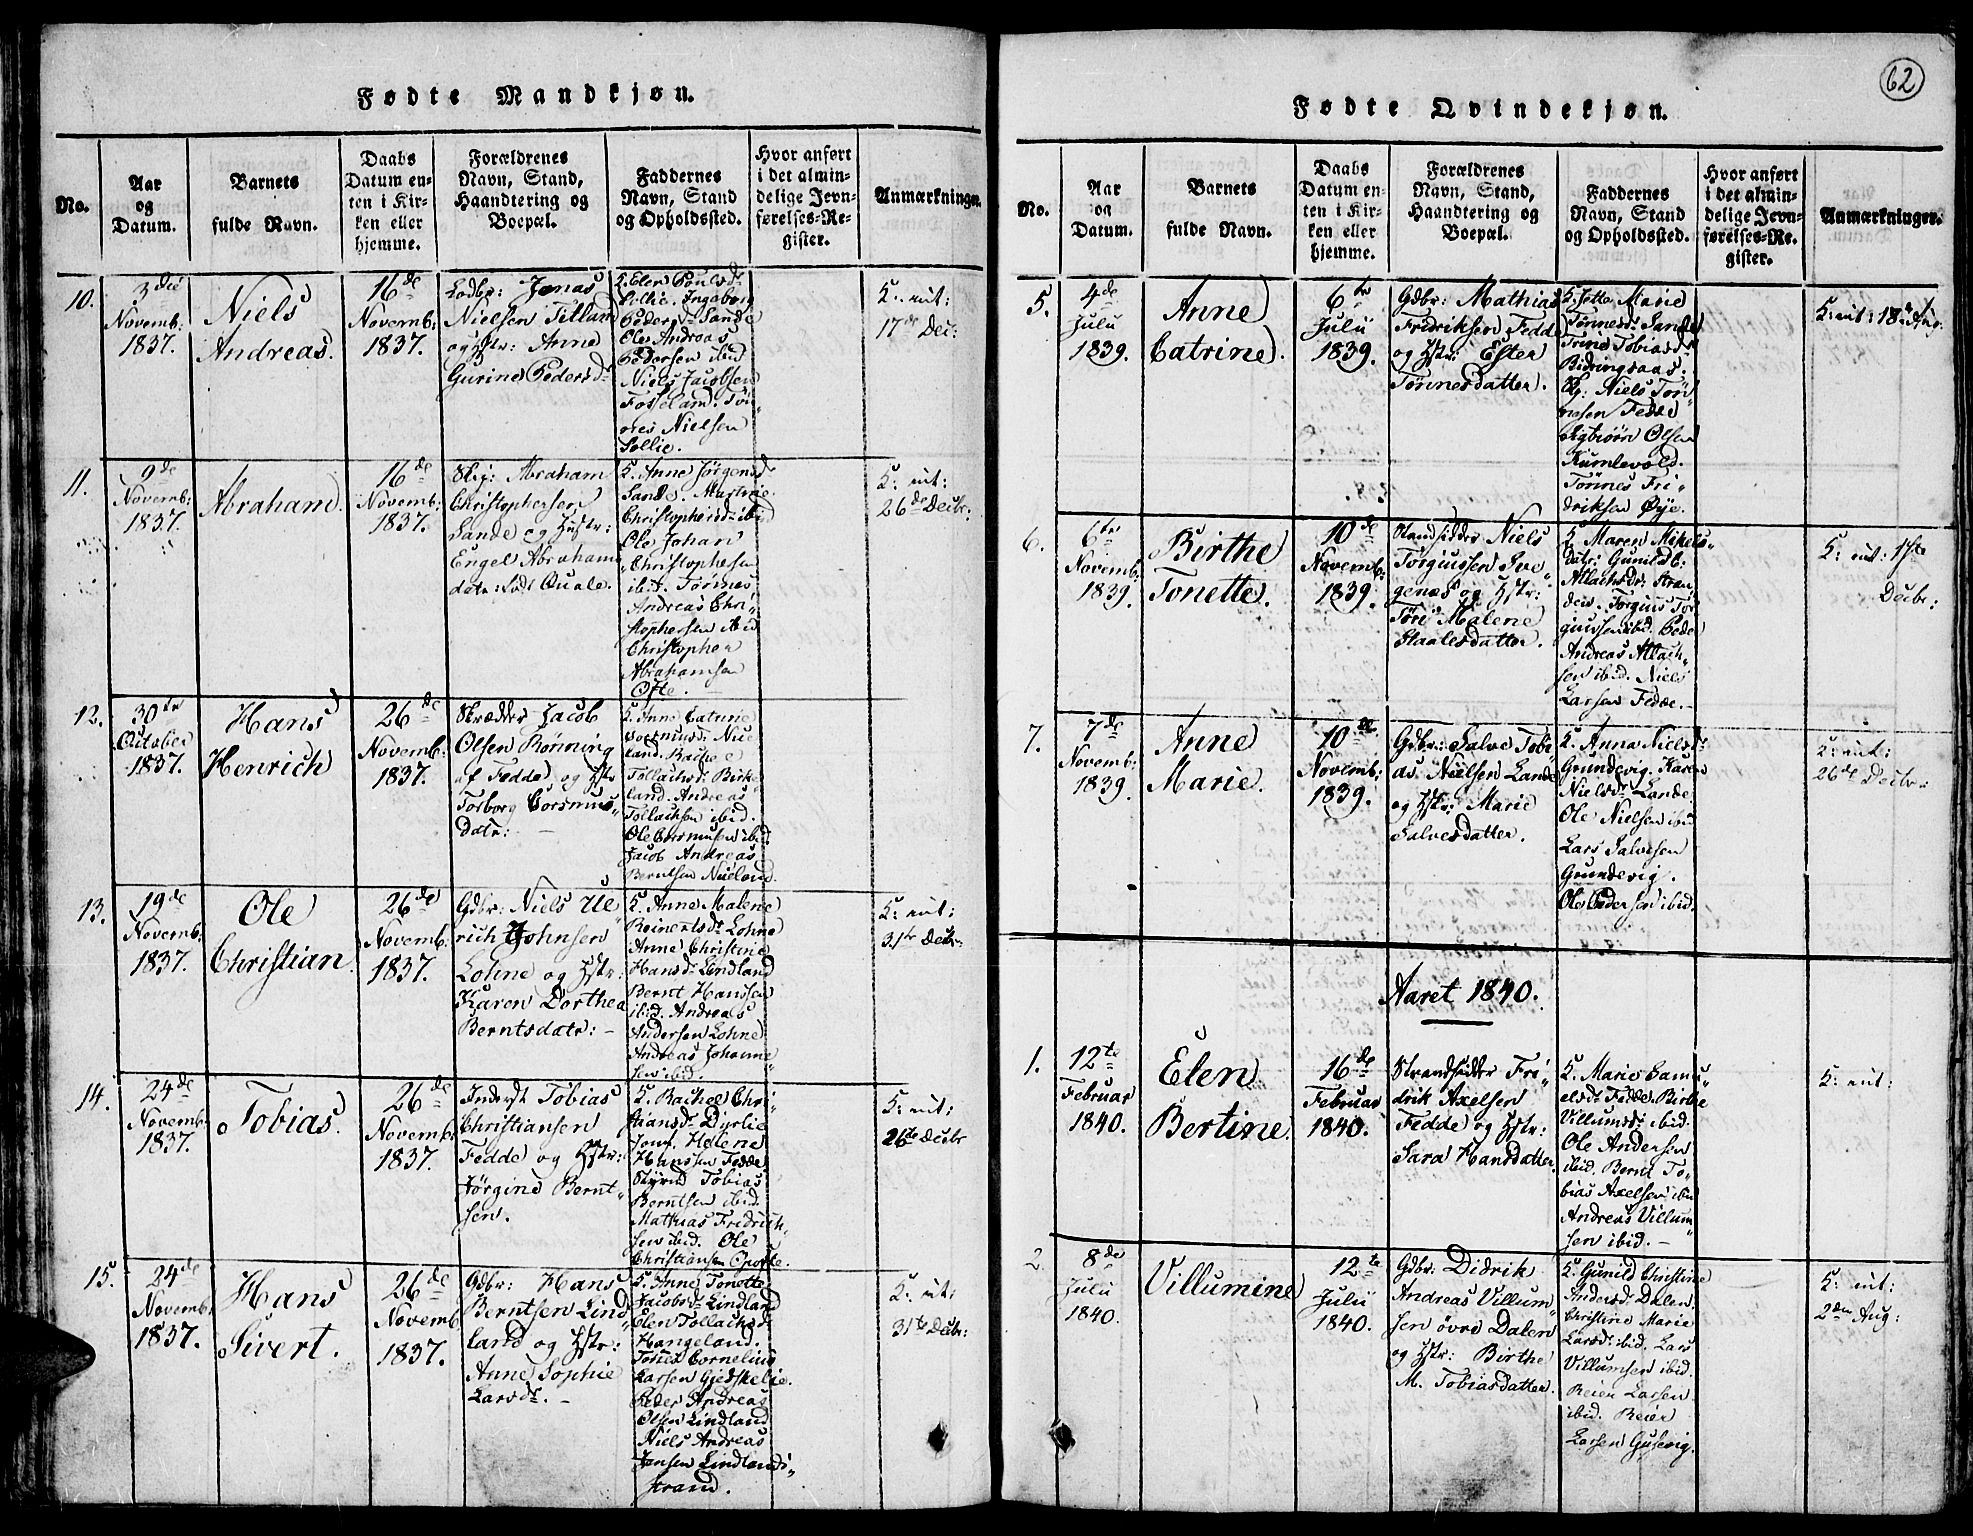 Fødte Mandkjøn.
No.
Aar
og
Datum.
Barnets
fulde Navn.
Daabs
Datum en-
ten i Kir-
ken eller
hjemme.
Forældrenes
Navn, Stand,
Haandtering og
Boepæl.
Faddernes
Navn, Stand
og Opholdssted.
Hvor anført
i det almin-
delige Jevn-
førelses-Re-
gister.
Anmærkninger.
10.
3die
Novemb:
1837.
Niels
Andreas.
16de
Novemb:
1837.
Jonas
Nielsen Titland
og Hstr: Anne
Gurine Pedersd.
Ingeborg
Pedersd. Sande
Ole Andreas
Pedersen ibid
Niels Jacobsen
Fosseland. Tön
nes Nielsen
Sollie.
17de Dec:
11.
9de
Novemb:
1837.
Abraham.
16de
Novemb:
1837.
Abraham
Christophersen
Sande og Hustr:
Engel Abrahams
datr: födt Quale.
Anne Jørgensd.
Sande. Martine
Christophersd. ibid
Ole Johan
Christophersen
ibid. Tönnes
Andreas Chri
stophersen ibid
Christopher
Abrahamsen
Ofte.
26de Decbr:
12.
30te
October
1837.
Hans
Henrich
26de
Novemb:
1837.
Skrædder Jacob
Olsen Rönning
af Fedde og Hstr
Torborg Gorsmus
datr:
Anne Catrine
land. Rachel
Tollachsd. Birke
land. Andreas
Tollachsen ibid.
Jacob Andreas
Berntsen
13.
19de
Novemb:
1837.
Ole
Christian.
26de
Novemb.
1837.
Gdbr: Niels Ul
rich Johnsen
Lohne og Hstr:
Karen Dorthea
Berntsdatr:
Anne Malene
Reinertsd. Lohne
Anne Christine
Hansd. Lindland
Bernt Hanssen
ibid. Andreas
Andersen Lohne
Andreas Johanne
sen ibid
31te Decbr
14.
24de
Novemb.
1837.
Tobias.
26de
Novemb:
1837.
Inderst Tobias
Christiansen
Fedde og Hstr:
Jörgine Bernt
sen.
Rachel Chri
stiansd. Dyrlie
Jomf. Helene
Hanssen Fedde
Tobias
Berntsen ibid.
Mathias Fridrich
sen ibid. Ole
Christiansen
26te Decbr
15.
24de
Novemb:
1837.
Hans
Sivert.
26de
Novemb
1837.
Gdbr: Hans
Berntsen Lind
land og Hstr:
Anne Sophie
Larsdr.
Anne Tonette
Jacobsd. Lindland
Elen Tollachsd.
Hangeland.
Cornelius
Larsen Gjedskelie.
Peder Andreas
Olsen Lindland
Niels Andreas
Jensen Lindlands
strand.
31te Decbr:
62
Fødte Qvindekjøn.
No.
Aar
og
Datum.
Barnets
fulde Navn.
Daabs
Datum en-
ten i Kir-
ken eller
hjemme.
Forældrenes
Navn, Stand,
Haandtering og
Boepæl.
Faddernes
Navn, Stand
og Opholdssted.
Hvor anført
i det almin-
delige Jevn-
førelses-Re-
gister.
Anmærkninger.
5.
4de
Julii
1839.
Anne
Catrine.
6te
Julii
1839.
Gdbr: Mathias
Fridriksen Fedde
og Hstr: Ester
Tönnesdatter.
Jette Marie
Tönnesd. Sande
Trine Tobiasdr
Bidringsaas.
Niels Tön
nesen Fedde
Asbiörn Olsen
Kumlevold.
Tönnes Fri
driksen Øye.
18de Aug.
6.
6te
Novemb:
1839.
Birthe
Tonette.
10de
Novemb:
1839.
Strandsidder Niels
Törgussen Sve
genæs og Hstr:
Malene
Staalesdatter.
Maren Mikels
datr: Gunild
Atlachsdr. Stran
den. Torgius Tor
giussen ibid. Peder
Andreas Atlach
sen ibid. Niels
Larsen Fedde.
1ste
Decbr:
7.
7de
Novemb:
1839.
Anne
Marie.
10de
Novemb:
1839.
Gdbr: Salve Tobi
as Nielsen Lande
og Hstr: Marie
Salvesdatter.
Anna Nielsdr
Grundevig. Karen
Nielsdr. Lande.
Ole Nielsen ibid
Lars Salvesen
Grundevig.
Ole Pedersen ibid.
26de Decbr:
Aaret 1840.
1.
12te
Februar
1840.
Elen
Bertine.
16de
Februar
1840.
Strandsidder Fri
drik Axelsen
Fedde og Hstr:
Sara Hansdatter.
Marie Samu
elsdr. Fedde. Birthe
Villumsdr. ibid.
Ole Andersen
ibid. Bernt To
bias Axelsen ibid
Andreas Villum
sen ibid.
2.
8de
Julii
1840.
Villumine.
12te
Julii
1840.
Gdbr. Didrik
Andreas Villum
sen övre Dalen
og Hstr: Birthe
M. Tobiasdatter.
Gunild Christine
Andersd. Dalen.
Christine Marie
Larsdr. ibid. Lars
Villumsen ibid.
Reier Larsen
ibid. Reier
Larsen Gusevig.
2den Aug: